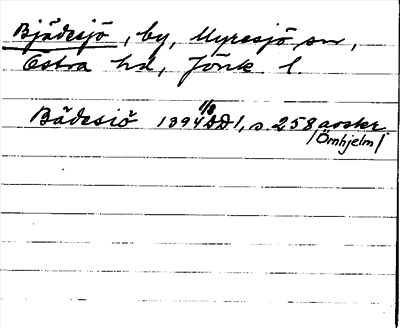 Bjädesjö, by, Myresjö sn,
Östra hd, Jönk. l.
Bädesiö 1394 1/8 DD1, s. 258, avskr.
/Örnhjelm/